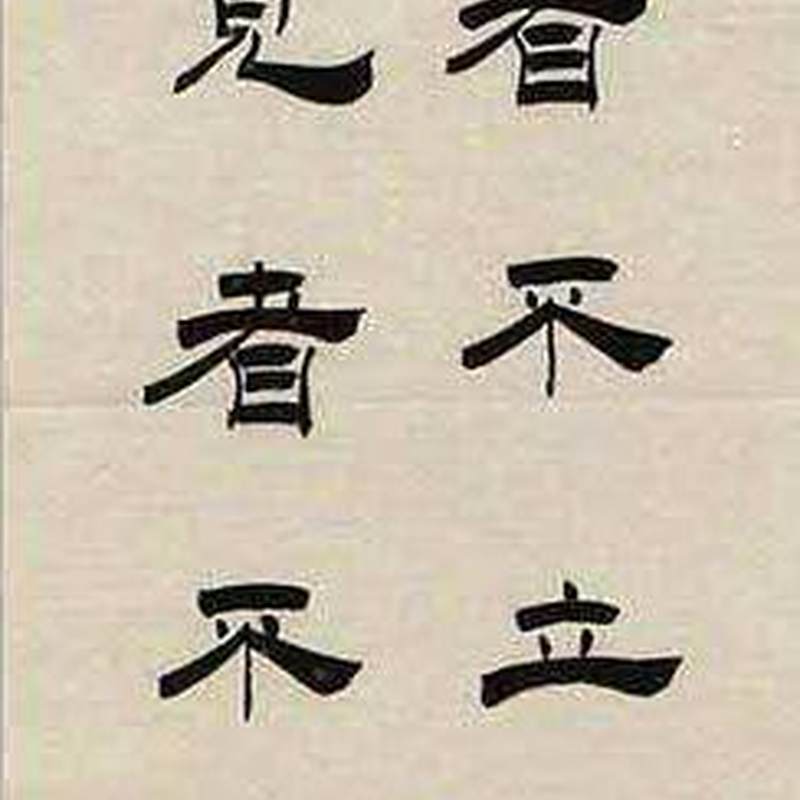 者不立
見者不